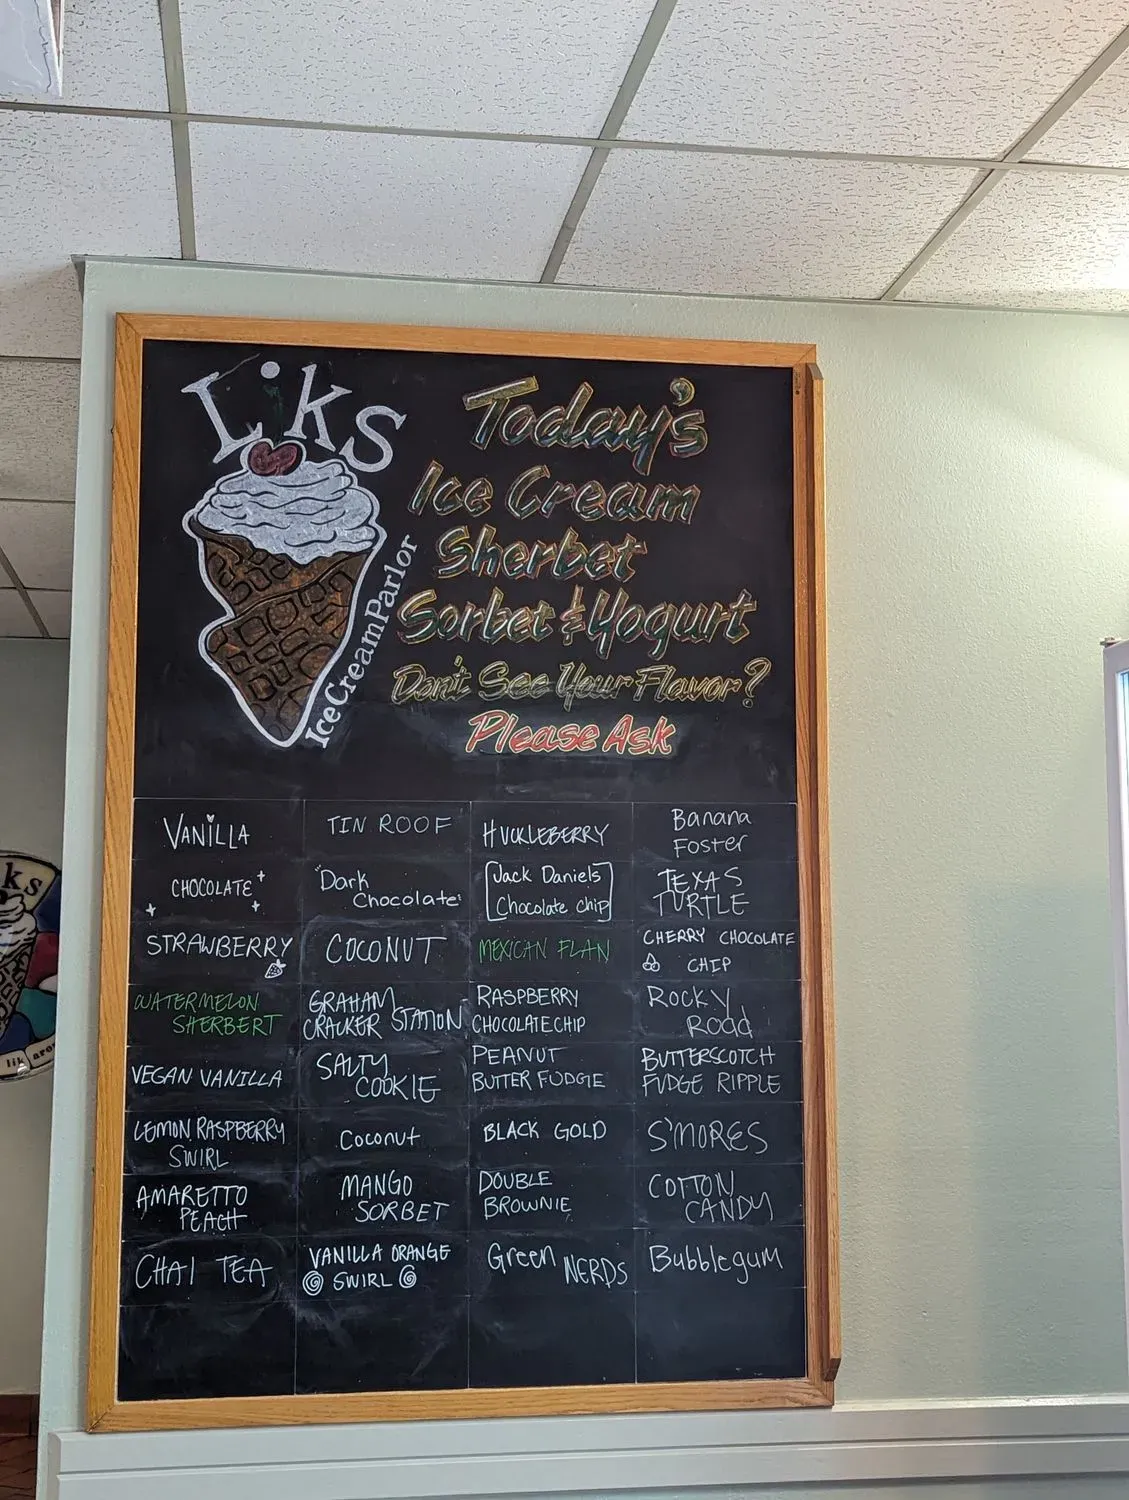 Liks
IceCreamParlor
Today's
Ice Cream
Sherbet
Sorbet & Yogurt
Don't See Your Flavor?
Please Ask
VANILLA
CHOCOLATE
STRAWBERRY
WATERMELON
SHERBERT
VEGAN VANILLA
LEMON RASPBERRY
SWIRL
AMARETTO
PEACH
CHAI TEA
TIN ROOF
"Dark
Chocolate"
COCONUT
GRAHAM
CRACKER STATION
SALTY
COOKIE
Coconut
MANGO
SORBET
VANILLA ORANGE
SWIRL
HUCKLEBERRY
Jack Daniels
Chocolate chip
MEXICAN FLAN
RASPBERRY
CHOCOLATE CHIP
PEANUT
BUTTER FUDGE
BLACK GOLD
DOUBLE
BROWNIE
Green NERDS
Banana
Foster
TEXAS
TURTLE
CHERRY CHOCOLATE
CHIP
ROCKY
ROAD
BUTTERSCOTCH
FUDGE RIPPLE
S'MORES
COTTON
CANDY
Bubblegum
ks
lik aro